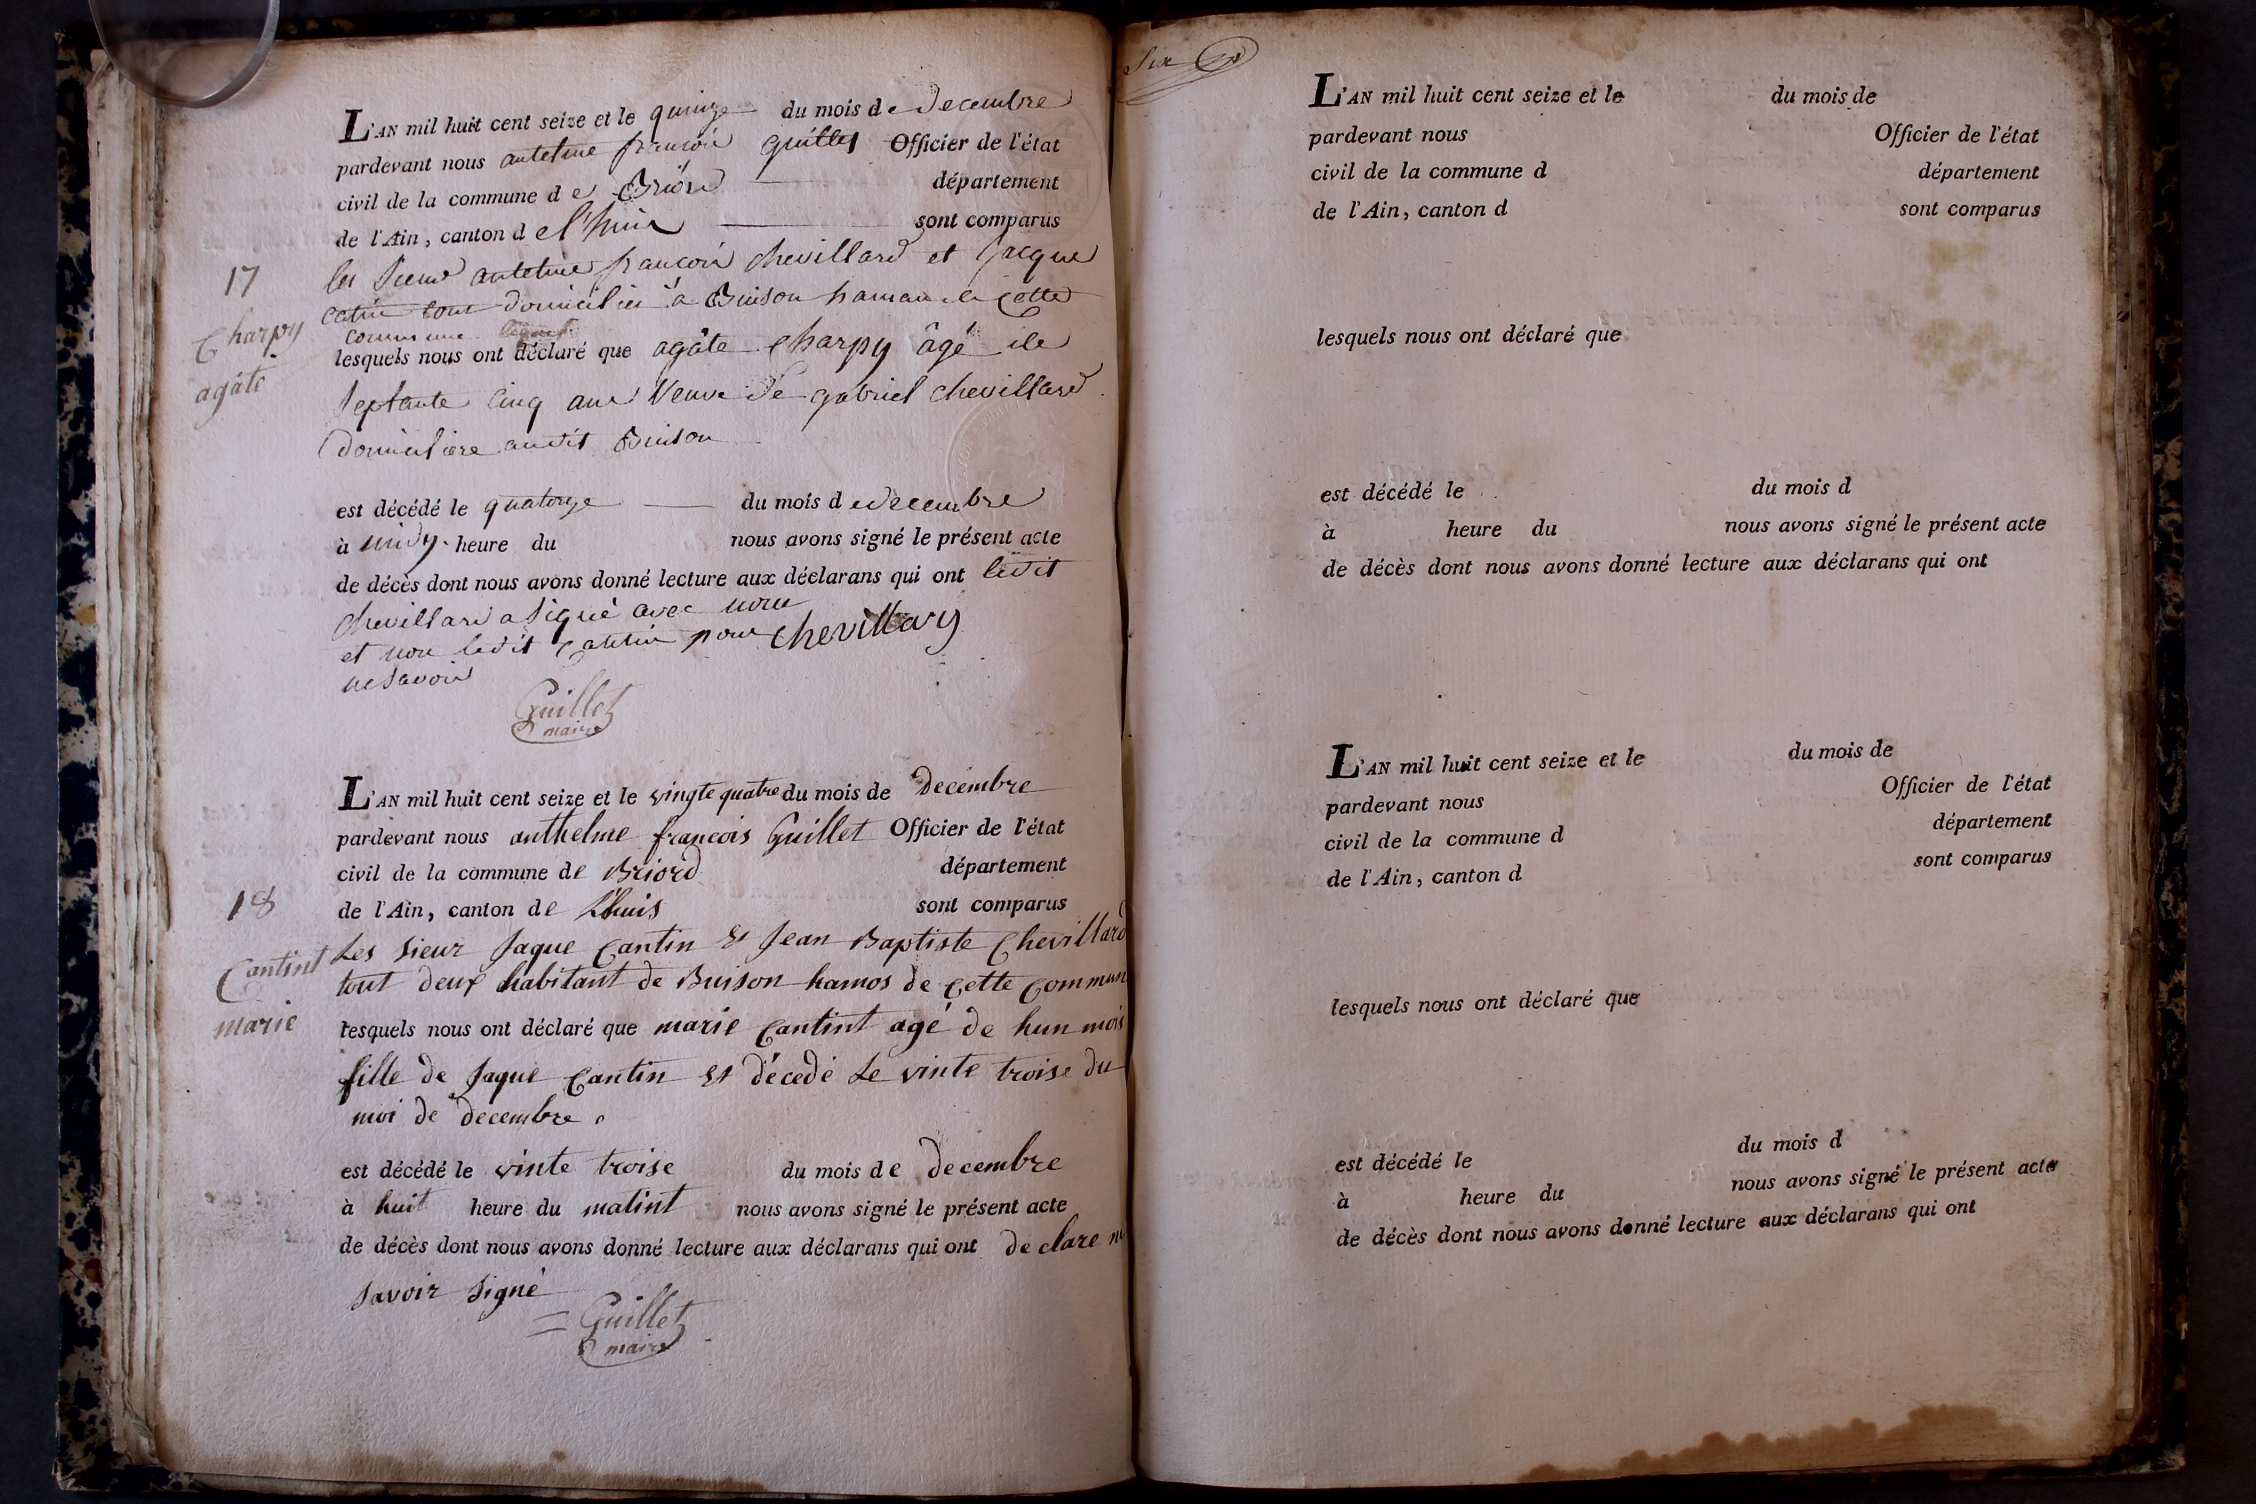 L'AN mil huit cent seize et le quinze du mois de decembre
pardevant nous antelme françois guillet Officier de l'état
civil de la commune de Briord département
de l'Ain, canton de l'huis sont comparus
17
les sieurs antelme françois chevillard et jacque
catin tous domiciliés à Buison hamau de cette
commune
Charpy
agâte
lesquels nous ont déclaré que agâte charpy âgé de
septante cinq ans veuve de gabriel chevillard
domiciliere audit Buison
est décédé le quatorze du mois de decembre
à midy heure du nous avons signé le présent acte
de décès dont nous avons donné lecture aux déclarans qui ont ledit
chevillard a signé avec nous
et non ledit cattin pour chevillard
ne savoir
Guillet
maire
L'AN mil huit cent seize et le vingte quatre du mois de decembre
pardevant nous anthelme francois Guillet Officier de l'état
civil de la commune de Briord département
de l'Ain, canton de Lhuis sont comparus
18
Les sieur Jaque Cantin et Jean Baptiste Chevillard
tout deux habitant de Buison hamos de cette commun
Cantint
marie
lesquels nous ont déclaré que marie Cantint agé de hun mois
fille de Jaque Cantin et décedé Le vinte troise du
moi de decembre
est décédé le vinte troise du mois de decembre
à huit heure du matint nous avons signé le présent acte
de décès dont nous avons donné lecture aux déclarans qui ont de clare ne
savoir signé
Guillet
maire
Six
L'AN mil huit cent seize et le du mois de
pardevant nous Officier de l'état
civil de la commune d département
de l'Ain, canton d sont comparus
lesquels nous ont déclaré que
est décédé le du mois d
à heure du nous avons signé le présent acte
de décès dont nous avons donné lecture aux déclarans qui ont
L'AN mil huit cent seize et le du mois de
pardevant nous Officier de l'état
civil de la commune d département
de l'Ain, canton d sont comparus
lesquels nous ont déclaré que
est décédé le du mois d
à heure du nous avons signé le présent acte
de décès dont nous avons donné lecture aux déclarans qui ont